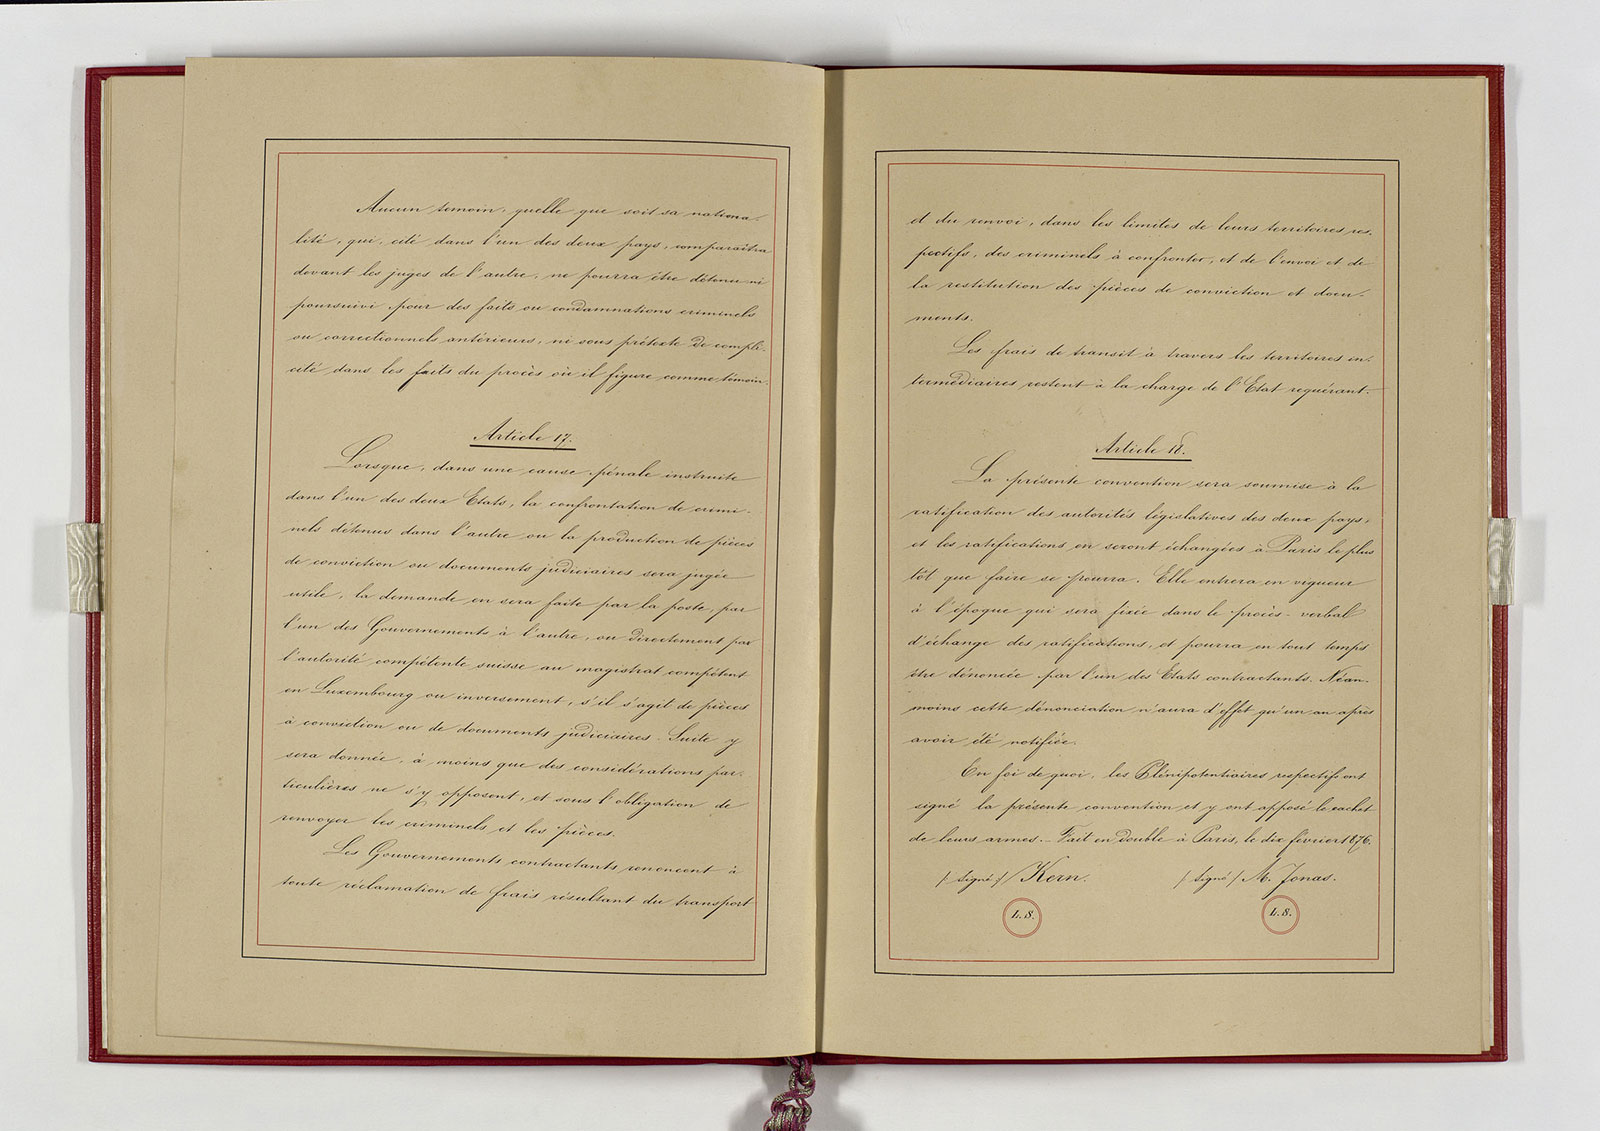 Aucun temoin, quelle que soit sa nationa-
lité, qui, cité dans l'un des deux pays, comparaîtra
devant les juges de l'autre, ne pourra être détenu ni
poursuivi pour des faits ou condamnations criminels
ou correctionnels antérieurs, ni sous prétexte de compli-
cité dans les faits du procès où il figure comme témoin.
Article 17.
Lorsque, dans une cause pénale instruite
dans l'un des deux Etats, la confrontation de crimi-
nels détenus dans l'autre ou la production de pièces
de conviction ou documents judiciaires sera jugée
utile, la demande en sera faite par la poste, par
l'un des Gouvernements à l'autre, ou directement par
l'autorité compétente suisse au magistrat compétent
en Luxembourg ou inversement, s'il s'agit de pièces
à conviction ou de documents judiciaires. Suite y
sera donnée, à moins que des considérations par-
ticulières ne s'y opposent, et sous l'obligation de
renvoyer les criminels et les pièces.
Les Gouvernements contractants renoncent à
toute réclamation de frais résultant du transport
et du renvoi, dans les limites de leurs territoires res-
pectifs, des criminels à confronter, et de l'envoi et de
la restitution des pièces de conviction et docu-
ments.
Les frais de transit à travers les territoires in-
termédiaires restent à la charge de l'Etat requérant.
Article 18.
La présente convention sera soumise à la
ratification des autorités législatives des deux pays,
et les ratifications en seront échangées à Paris le plus
tôt que faire se pourra. Elle entrera en vigueur
à l'époque qui sera fixée dans le procès-verbal
d'échange des ratifications, et pourra en tout temps
être dénoncée par l'un des Etats contractants. Néan-
moins cette dénonciation n'aura d'effet qu'un an après
avoir été notifiée.
En foi de quoi, les Plénipotentiaires respectifs ont
signé la présente convention et y ont apposé le cachet
de leurs armes. - Fait en double à Paris, le dix février 1876.
/: signé :/ Kern. /: signé :/ M. Jonas.
L.S. L.S.